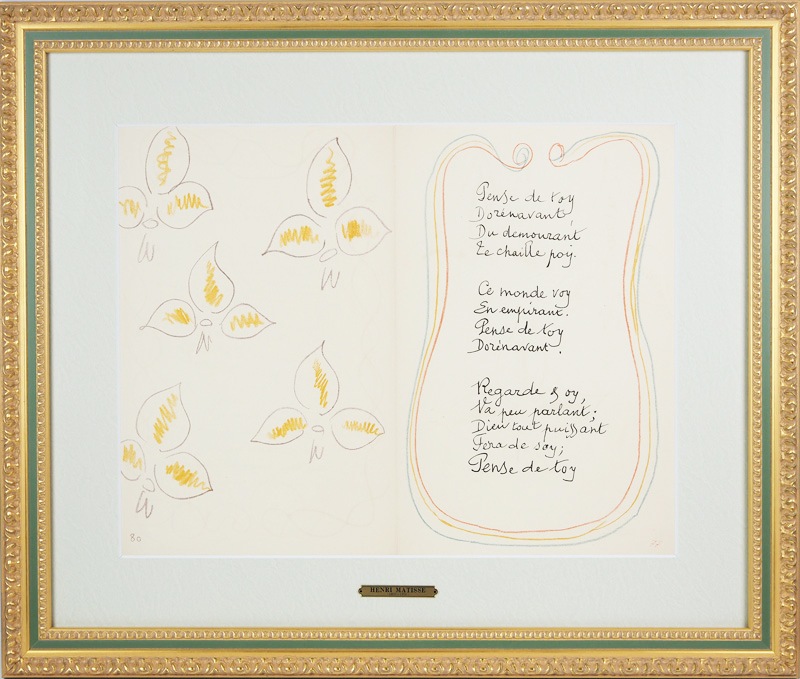 Pense de toy
Dorénavant,
Du demourant
Te chaille poy.
Ce monde voy
En empirant.
Pense de toy
Dorénavant.
Regarde & oy,
Va peu parlant;
Dieu tout puissant
Fera de soy;
Pense de toy
80
HENRI MATISSE